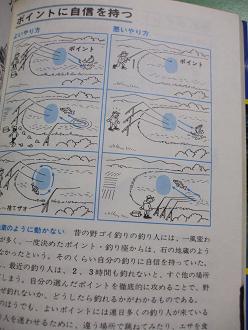 ポイントに自信を持つ
よいやり方
悪いやり方
ポイント
ポイント
捨てザオ
のように動かない 昔の野ゴイ釣りの釣り人には、一風変わ
が多く、一度決めたポイント・釣り座からは、石の地蔵のよう
なかったという。そのくらい自分の釣りに自信を持っていた。
、最近の釣り人は、2、3時間も釣れないと、すぐ他の場所
しまう。自分の選んだポイントを徹底的に攻めることで、野
ぜ釣れないか、どうしたら釣れるかがわかるものである。
のほうでも、よいポイントには連日多くの釣り人が来ている
人を迷わせるために、違う場所で跳ねてみたり、エサを食